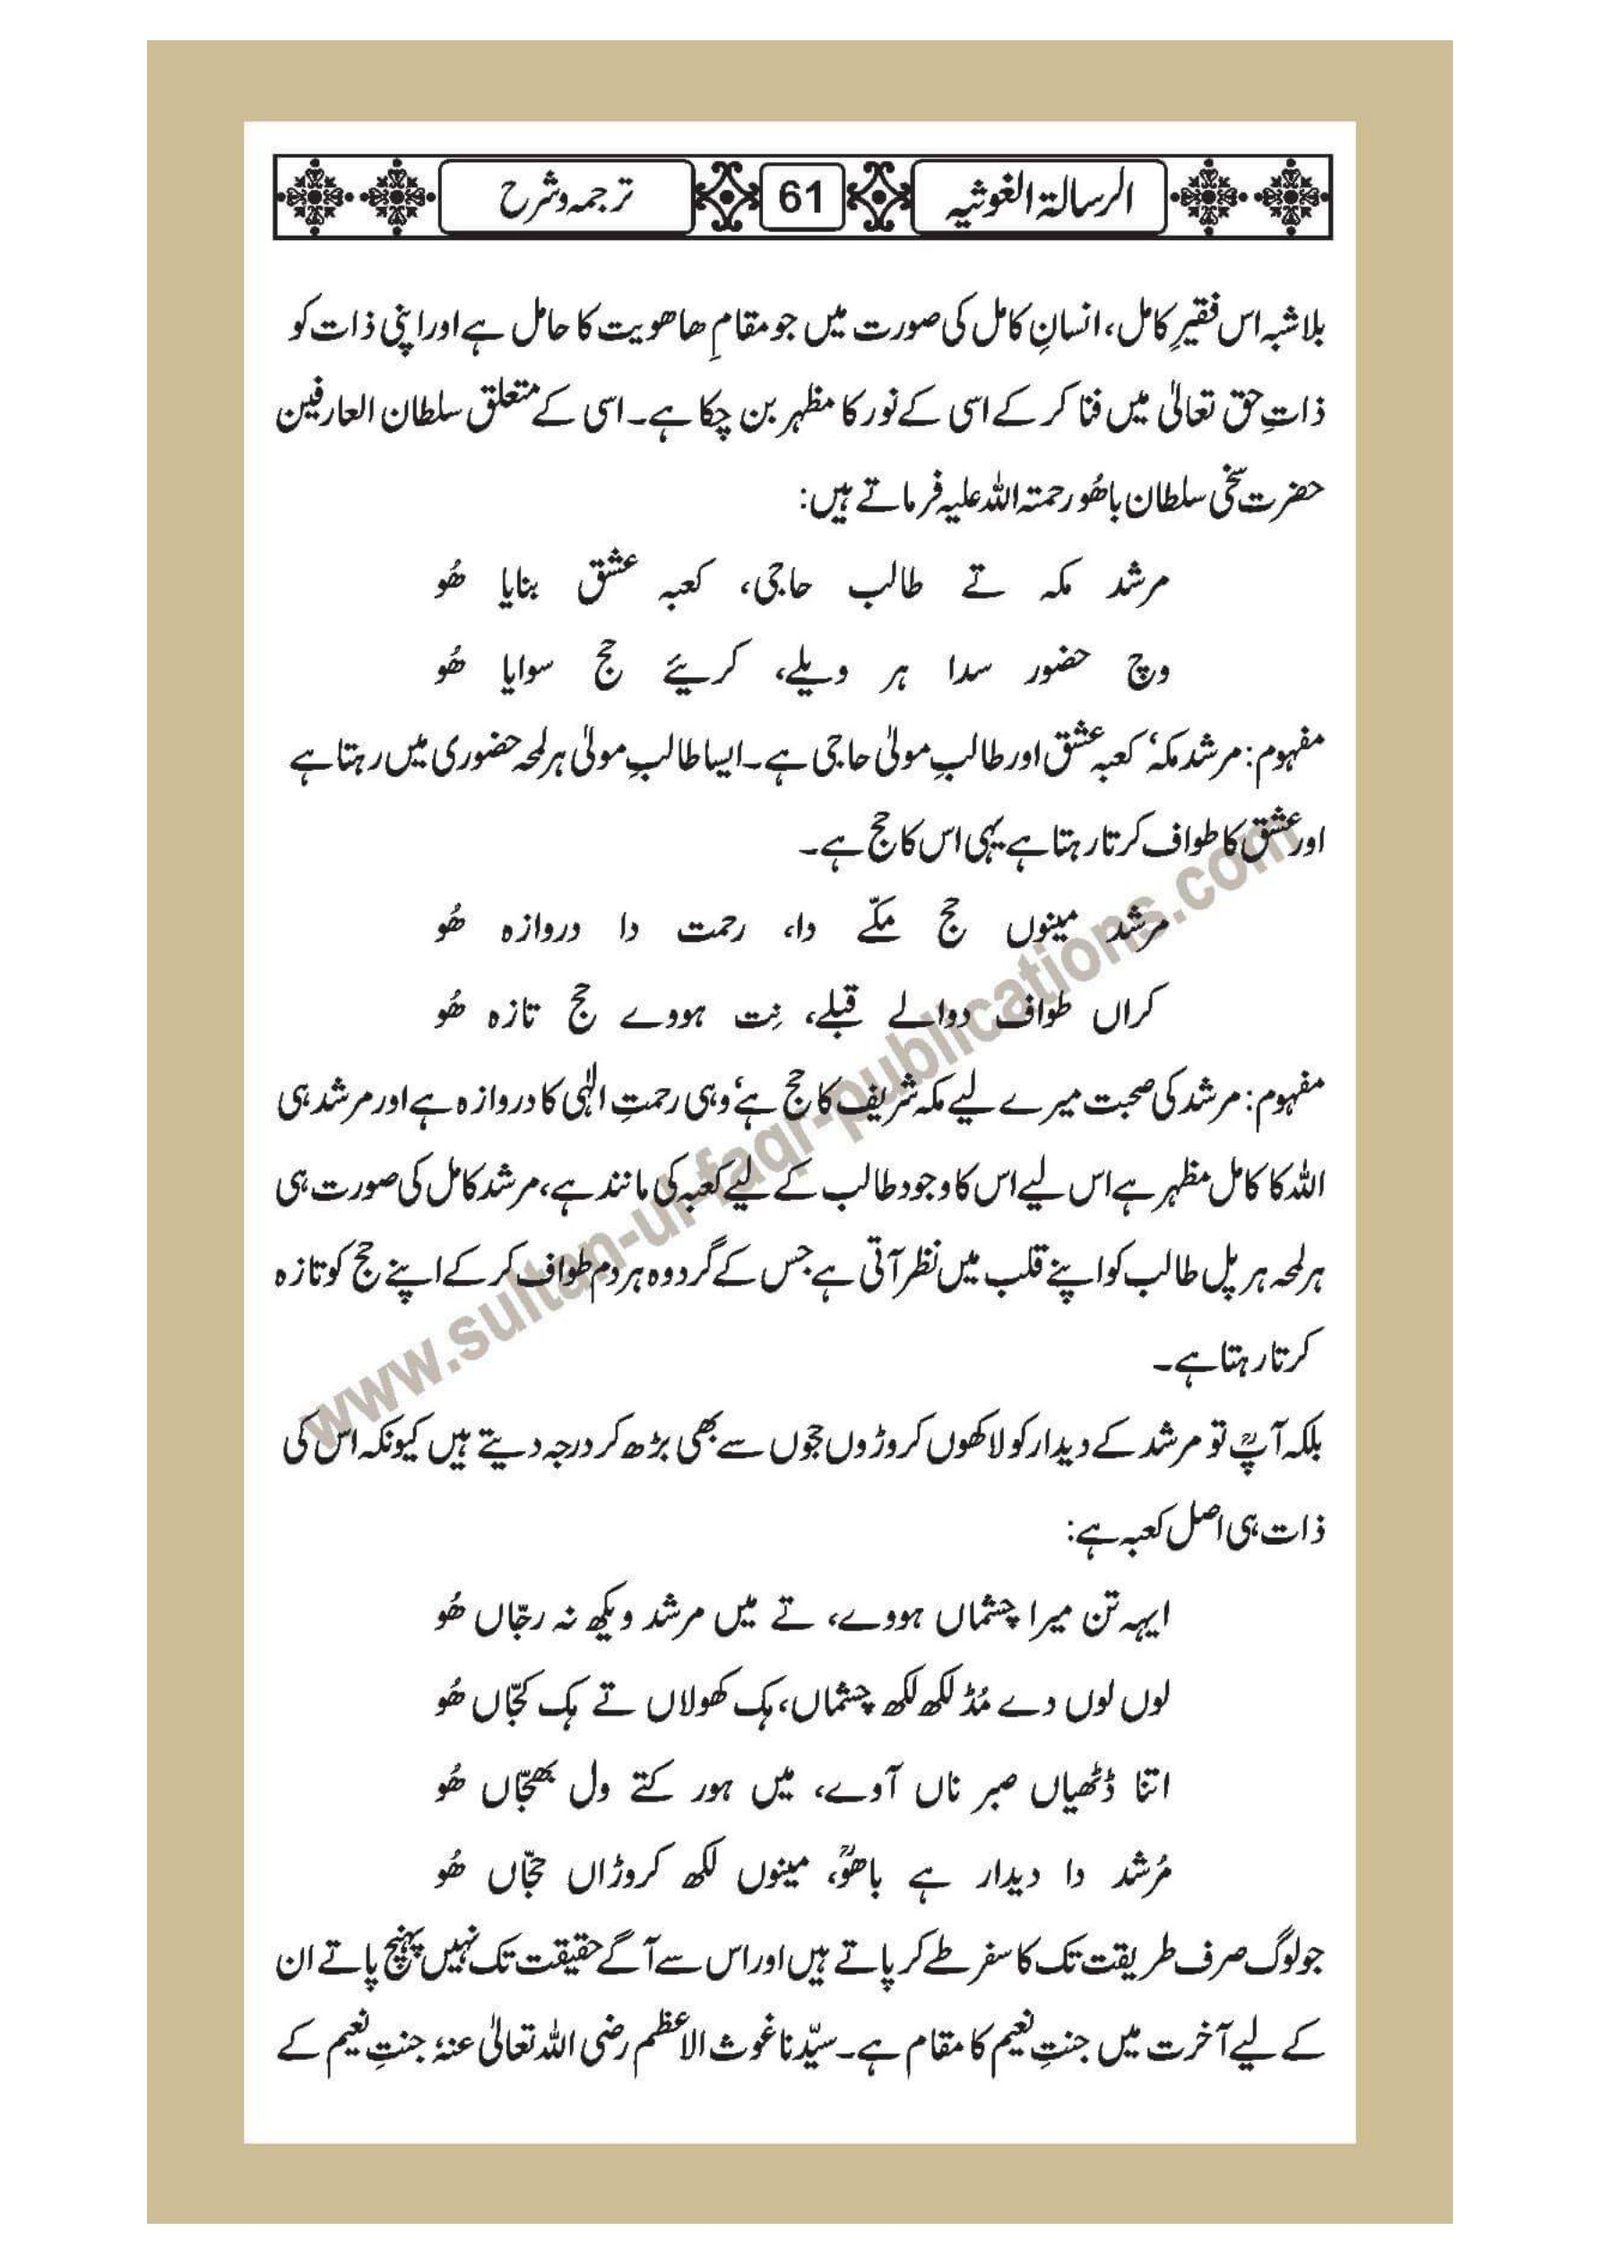 الرسالۃ الغوثیہ 61 ترجمہ و شرح
بلاشبہ اس فقیرِ کامل، انسانِ کامل کی صورت میں جو مقامِ ھاھویت کا حامل ہے اور اپنی ذات کو
ذاتِ حق تعالیٰ میں فنا کر کے اسی کے نور کا مظہر بن چکا ہے۔ اسی کے متعلق سلطان العارفین
حضرت سخی سلطان باھُو رحمتہ اللہ علیہ فرماتے ہیں:
مرشد مکہ تے طالب حاجی، کعبہ عشق بنایا ھُو
وچ حضور سدا ہر ویلے، کریئے حج سوایا ھُو
مفہوم: مرشد مکہ‘ کعبہ عشق اور طالبِ مولیٰ حاجی ہے۔ ایسا طالبِ مولیٰ ہر لمحہ حضوری میں رہتا ہے
اور عشق کا طواف کرتا رہتا ہے یہی اس کا حج ہے۔
مرشد مینوں حج مکّے دا، رحمت دا دروازہ ھُو
کراں طواف دوالے قبلے، نِت ہووے حج تازہ ھُو
مفہوم: مرشد کی صحبت میرے لیے مکہ شریف کا حج ہے‘ وہی رحمتِ الٰہی کا دروازہ ہے اور مرشد ہی
اللہ کا کامل مظہر ہے اس لیے اس کا وجود طالب کے لیے کعبہ کی مانند ہے، مرشد کامل کی صورت ہی
ہر لمحہ ہر پل طالب کو اپنے قلب میں نظر آتی ہے جس کے گرد وہ ہر دم طواف کر کے اپنے حج کو تازہ
کرتا رہتا ہے۔
بلکہ آپؒ تو مرشد کے دیدار کو لاکھوں کروڑوں حجوں سے بھی بڑھ کر درجہ دیتے ہیں کیونکہ اس کی
ذات ہی اصل کعبہ ہے:
ایہہ تن میرا چشماں ہووے، تے میں مرشد ویکھ نہ رجّاں ھُو
لوں لوں دے مُڈ لکھ لکھ چشماں، ہک کھولاں تے ہک کجّاں ھُو
اتنا ڈٹھیاں صبر ناں آوے، میں ہور کتے ول بھجّاں ھُو
مُرشد دا دیدار ہے باھُوؒ، مینوں لکھ کروڑاں حجّاں ھُو
جو لوگ صرف طریقت تک کا سفر طے کر پاتے ہیں اور اس سے آگے حقیقت تک نہیں پہنچ پاتے ان
کے لیے آخرت میں جنتِ نعیم کا مقام ہے۔ سیّدنا غوث الاعظم رضی اللہ تعالیٰ عنہٗ جنتِ نعیم کے
www.sultan-ul-faqr-publications.com